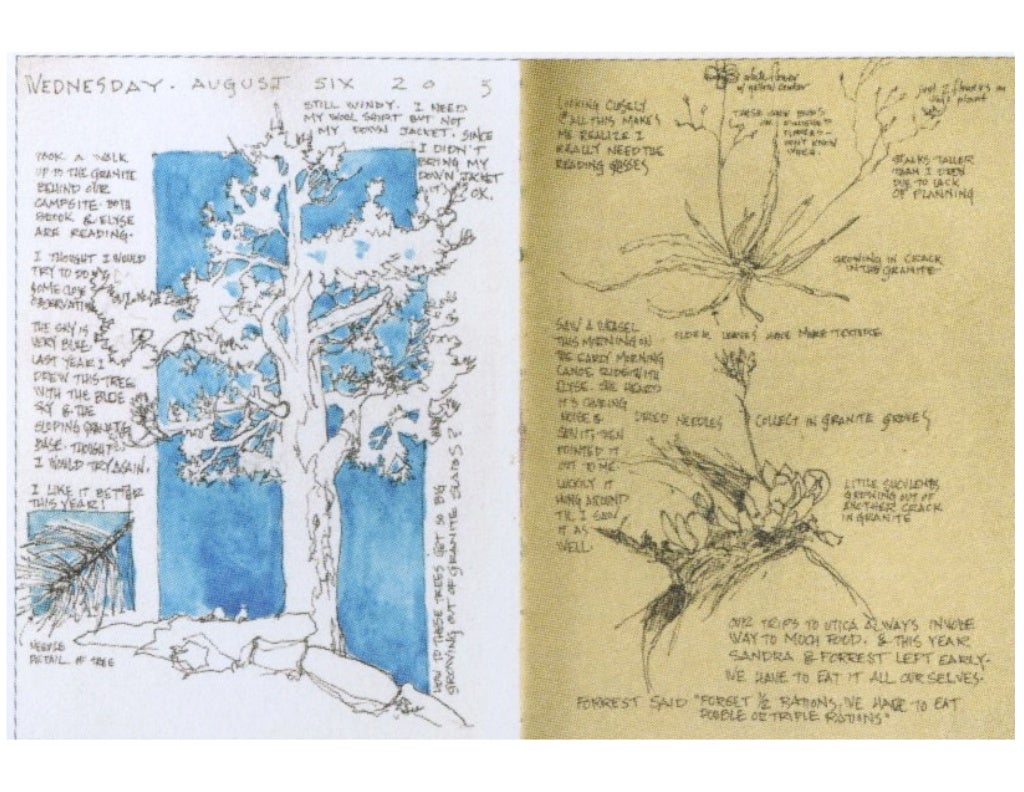 WEDNESDAY. AUGUST SIX 20 5
STILL WINDY. I NEED
MY WOOL SHIRT BUT NOT
MY DOWN JACKET. SINCE
I DIDN'T
BRING MY
DOWN JACKET
IT'S OK.
TOOK A WALK
UP TO THE GRANITE
BEHIND OUR
CAMPSITE. BOTH
BROOK & ELYSE
ARE READING.
I THOUGHT I WOULD
TRY TO DO
SOME CLOSE
OBSERVATION
THE SKY IS
VERY BLUE.
LAST YEAR I
DREW THIS TREE
WITH THE BLUE
SKY & THE
SLOPING GRANITE
BASE. THOUGHT
I WOULD TRY AGAIN.
I LIKE IT BETTER
THIS YEAR!
NEEDLE
DETAIL OF TREE
HOW DO THESE TREES GET SO BIG
GROWING OUT OF GRANITE SLABS?
LOOKING CLOSELY
AT ALL THIS MAKES
ME REALIZE I
REALLY NEED THE
READING GLASSES
white flower
w/ yellow center
THESE BUDS
FLOWERS-
DON'T KNOW
WHICH.
just 2 flowers on
this plant
STALKS TALLER
THAN I DREW
DUE TO LACK
OF PLANNING
GROWING IN CRACK
IN THE GRANITE
OLDER LEAVES HAVE MORE TEXTURE
SAW A WEASEL
THIS MORNING ON
THE EARLY MORNING
CANOE RIDE WITH
ELYSE. SHE HEARD
IT'S
NOISE &
SAW IT, THEN
POINTED IT
OUT TO ME.
LUCKILY IT
HUNG AROUND
TIL I SAW
IT AS
WELL.
DRIED NEEDLES COLLECT IN GRANITE GROVES
LITTLE SUCCULENTS
GROWING OUT OF
ANOTHER CRACK
IN GRANITE
OUR TRIPS TO UTICA ALWAYS INVOLVE
WAY TO MUCH FOOD. & THIS YEAR
SANDRA & FORREST LEFT EARLY.
WE HAVE TO EAT IT ALL OURSELVES.
FORREST SAID "FORGET 1/2 RATIONS, WE HAVE TO EAT
DOUBLE OR TRIPLE RATIONS"